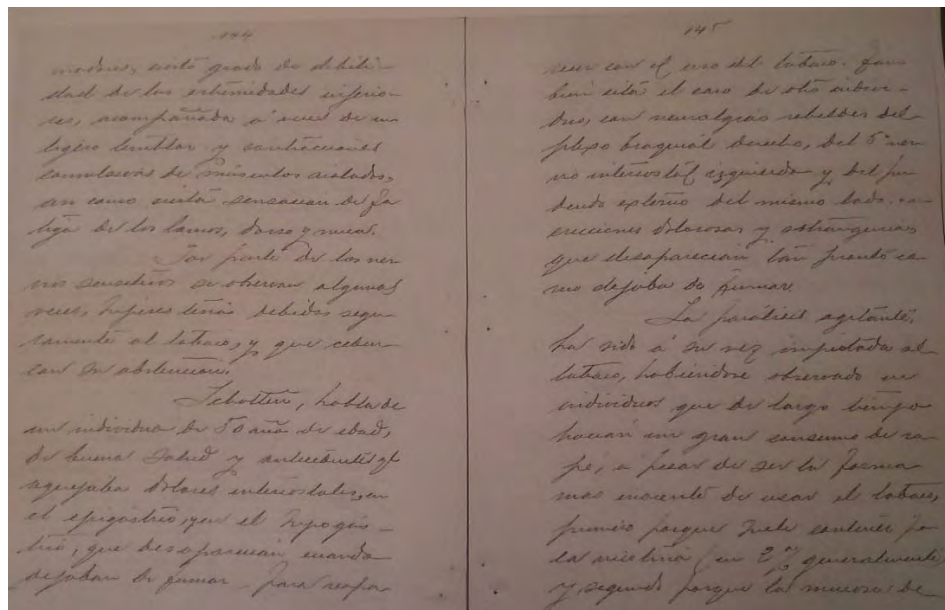 144
madores, cierto grado de debili-
dad de las extremidades inferio-
res, acompañada á veces de un
ligero temblor y contracciones
convulsivas de músculos aislados,
asi como cierta sensacion de fa
tiga de los lomos, dorso y nuca.
Por parte de los ner
vios sensitivos se observan algunas
veces, hiperestesias debidas segu
ramente al tabaco, y que ceden
con su abstencion.
habla de
un individuo de 50 años de edad,
de buena salud y antecedentes q!
aquejaba dolores intercostales, en
el epigastrio, y en el hipogas-
trio, que desaparecian cuando
dejaban de fumar para reapa
145
recer con el uso del tabaco. Tam
bien cita el caso de otro indivi-
duo, con neuralgias rebeldes del
plexo braquial derecho, del 5º ner
vio intercostal izquierdo y del pu
dendo externo del mismo lado con
erecciones dolorosas y estranguria
que desaparecian tan pronto co-
mo dejaba de fumar.
La parálisis agitante,
ha sido á su vez imputada al
tabaco, habiéndose observado en
individuos que de largo tiempo
hacian un gran consumo de ra
pé, a pesar de ser la forma
mas inocente de usar el tabaco,
primero porque suele contener po
ca nicotina (un 2% generalmente)
y segundo porque la mucosa de